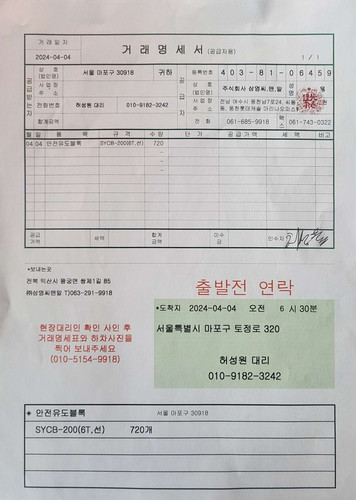 거래일자
2024-04-04
거 래 명 세 서 (공급자용)
1 / 1
공급받는자
상 호 (법인명) 서울 마포구 30918 귀하
사업장 주소
전화번호 허성원 대리 010-9182-3242
합계금액
공급자
등록번호 403-81-06459
상 호 (법인명) 주식회사 삼영씨.엔.알 성명
사업장 주소
전 화 061-685-9918 팩스 061-743-0322
월일 품 목 규 격 수량 단 가 공급가액 세액 비고
04 04 안전유도블록 SYCB-200(6T,선) 720
-
-
-
공급가액 세액 합계금액 미수금 인수자
*보내는곳
전북 익산시 왕궁면 쌍제1길 85
㈜삼영씨앤알 T)063-291-9918
출발전 연락
*도착지 2024-04-04 오전 6 시 30분
서울특별시 마포구 토정로 320
허성원 대리
010-9182-3242
현장대리인 확인 사인 후
거래명세표와 하차사진을
찍어 보내주세요
(010-5154-9918)
◈ 안전유도블록 서울 마포구 30918
SYCB-200(6T,선) 720개